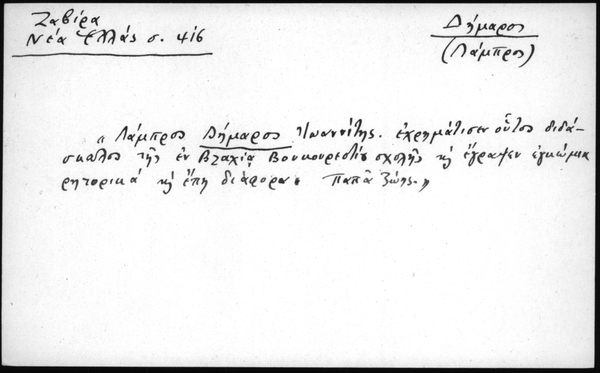 Ζαβίρα
Νέα Ἑλλάς σ. 416
Δήμαρος
(Λάμπρος)
"Λάμπρος Δήμαρος Ἰωαννίτης. ἐχρημάτισεν οὗτος διδά-
σκαλος τῆς ἐν Βλαχίᾳ Βουκουρεστίου σχολῆς κ̀ ἔγραψεν ἐγκώμια
ρητορικά κ̀ ἔπη διάφορα. Παπᾶ Ζώης."